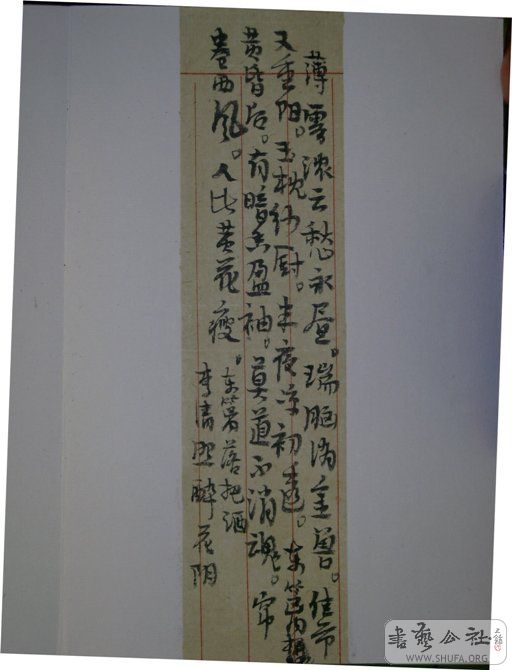 薄雾浓云愁永昼。瑞脑消金兽。佳节
又重阳。玉枕纱厨。半夜凉初透。东篱
黄昏后。有暗香盈袖。莫道不消魂。帘
卷西风。人比黄花瘦。
东篱落把酒
李清照醉花阴
書藝公社
WWW.SHUFA.ORG